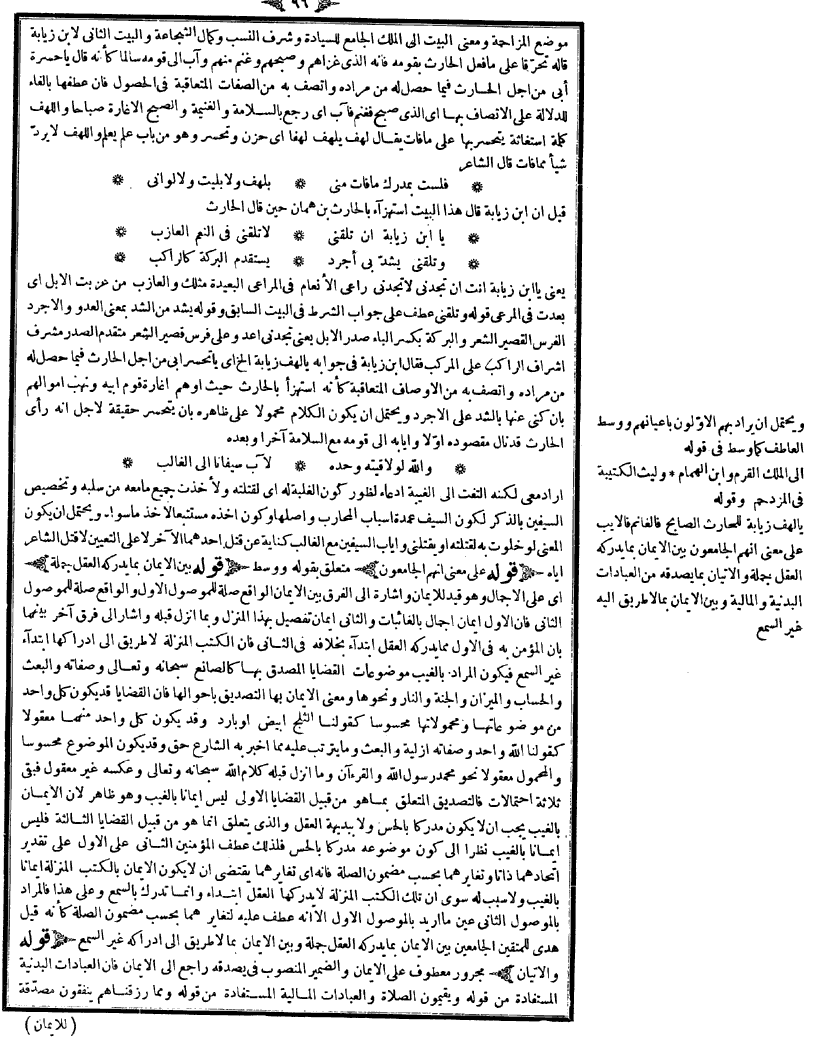 ٩٦
موضع المزاحمة ومعنى البيت الى الملك الجامع للسيادة وشرف النسب وكمال الشجاعة والبيت الثانى لابن زيابة
قاله تحرقا على مافعل الحارث بقومه فانه الذى غزاهم وصبحهم وغنم منهم وآب الى قومه سالما كأنه قال ياحسرة
أبى من اجل الحارث فيما حصل له من مراده واتصف به من الصفات المتعاقبة فى الحصول فان عطفها بالفاء
للدلالة على الاتصاف بها اى الذى صبح فغنم فآب اى رجع بالسلامة والغنيمة والصبح الاغارة صباحا واللهف
كلمة استغاثة يتحسر بها على مافات يقال لهف يلهف لهفا اى حزن وتحسر وهو من باب علم يعلم واللهف لايرد
شيأ ممافات قال الشاعر
فلست بمدرك مافات منى * بلهف ولابليت ولالوانى
قيل ان ابن زيابة قال هذا البيت استهزآء بالحارث بن همان حين قال الحارث
يا ابن زيابة ان تلقنى * لاتلقنى فى النعم العازب
وتلقنى يشتد بى أجرد * يستقدم البركة كالراكب
يعنى ياابن زيابة انت ان تجدنى لاتجدنى راعى الأنعام فى المراعى البعيدة مثلك والعازب من عزبت الابل اى
بعدت فى المرعى قوله وتلقنى عطف على جواب الشرط فى البيت السابق وقوله يشد من الشد بمعنى العدو والاجرد
الفرس القصير الشعر والبركة بكسر الباء صدر الابل يعنى تجدنى اعد وعلى فرس قصير الشعر متقدم الصدر مشرف
اشراف الراكب على المركب فقال ابن زيابة فى جوابه يالهف زيابة الخ اى ياتحسر ابى من اجل الحارث فيما حصل له
من مراده واتصف به من الاوصاف المتعاقبة كأنه استهزأ بالحارث حيث اوهم اغارة قوم ابيه ونهب اموالهم
بان كنى عنها بالشد على الاجرد ويحتمل ان يكون الكلام محمولا على ظاهره بان يتحسر حقيقة لاجل انه رأى
الحارث قدنال مقصوده اولا وايابه الى قومه مع السلامة آخرا وبعده
والله لولاقيته وحده * لآب سيفانا الى الغالب
ارادمعى لكنه التفت الى الغيبة ادعاء لظهور كون الغلبة له اى لقتلته ولأخذت جميع مامعه من سلبه وتخصيص
السيفين بالذكر لكون السيف عمدة اسباب المحارب واصلها وكون اخذه مستتبعا لاخذ ماسواه ويحتمل ان يكون
المعنى لوخلوت به لقتلته اويقتلنى واياب السيفين مع الغالب كناية عن قتل احدهما الآخر لا على التعيين لاقتل الشاعر
اياه (قوله على معنى انهم الجامعون) متعلق بقوله ووسط (قوله بين الايمان بمايدركه العقل جملة)
اى على الاجمال وهو قيد للايمان واشارة الى الفرق بين الايمان الواقع صلة للموصول الاول والواقع صلة للموصول
الثانى فان الاول ايمان اجمال بالغائبات والثانى ايمان تفصيل بهذا المنزل وبما انزل قبله واشار الى فرق آخر بينهما
بان المؤمن به فى الاول ممايدركه العقل ابتدآء بخلافه فى الثانى فان الكتب المنزلة لاطريق الى ادراكها ابتدآء
غير السمع فيكون المراد بالغيب موضوعات القضايا المصدق بها كالصانع سبحانه وتعالى وصفاته والبعث
والحساب والميزان والجنة والنار ونحوها ومعنى الايمان بها التصديق باحوالها فان القضايا قديكون كل واحد
من موضوعاتها ومحمولاتها محسوسا كقولنا الثلج ابيض اوبارد وقد يكون كل واحد منهما معقولا
كقولنا الله واحد وصفاته ازلية والبعث ومايترتب عليه مما اخبر به الشارع حق وقديكون الموضوع محسوسا
والمحمول معقولا نحو محمد رسول الله والقرءآن وما انزل قبله كلام الله سبحانه وتعالى وعكسه غير معقول فبقى
ثلاثة احتمالات فالتصديق المتعلق بماهو من قبيل القضايا الاولى ليس ايمانا بالغيب وهو ظاهر لان الايمان
بالغيب يجب ان لايكون مدركا بالحس ولا ببديهة العقل والذى يتعلق انما هو من قبيل القضايا الثالثة فليس
ايمانا بالغيب نظرا الى كون موضوعه مدركا بالحس فلذلك عطف المؤمنين الثانى على الاول على تقدير
اتحادهما ذاتا وتغايرهما بحسب مضمون الصلة فانه اى تغايرهما يقتضى ان لايكون الايمان بالكتب المنزلة ايمانا
بالغيب ولاسبب له سوى ان تلك الكتب المنزلة لايدركها العقل ابتداء وانما تدرك بالسمع وعلى هذا فالمراد
بالموصول الثانى عين مااريد بالموصول الاول الاانه عطف عليه لتغايرهما بحسب مضمون الصلة كأنه قيل
هدى للمتقين الجامعين بين الايمان بمايدركه العقل جملة وبين الايمان بما لاطريق الى ادراكه غير السمع (قوله
والاتيان) مجرور معطوف على الايمان والضمير المنصوب فى يصدقه راجع الى الايمان فان العبادات البدنية
المستفادة من قوله ويقيمون الصلاة والعبادات المالية المستفادة من قوله ومما رزقناهم ينفقون مصدقة
(للايمان)
ويحتمل ان يراد بهم الاولون باعيانهم ووسط
العاطف كماوسط فى قوله
الى الملك القرم وابن الهمام * وليث الكتيبة
فى المزدحم وقوله
يالهف زيابة للحارث الصابح فالغانم فالايب
على معنى انهم الجامعون بين الايمان بمايدركه
العقل جملة والاتيان بمايصدقه من العبادات
البدنية والمالية وبين الايمان بمالاطريق اليه
غير السمع